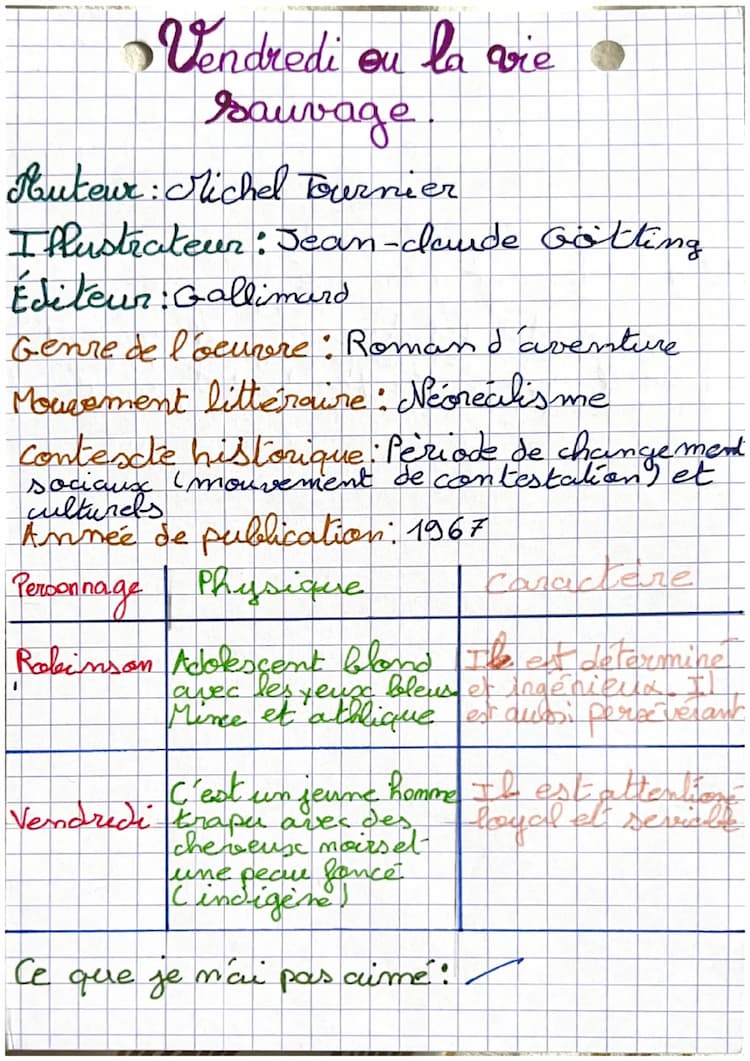 Vendredi ou la vie
sauvage.
Auteur : Michel Tournier
Illustrateur : Jean-claude Götting
Éditeur : Gallimard
Genre de l'oeuvre : Roman d'aventure
Mouvement littéraire : Néoréalisme
Contexte historique : Période de changement
sociaux (mouvement de contestation) et
culturels
Année de publication : 1967
Personnage Physique Caractère
Robinson Adolescent blond Il est déterminé
avec les yeux bleus et ingénieux. Il
Mince et athlique est aussi persévérant
C'est un jeune homme Il est attentioné
Vendredi trapu avec des loyal et
cheveux noirs et
une peau foncé
(indigène)
Ce que je n'ai pas aimé :